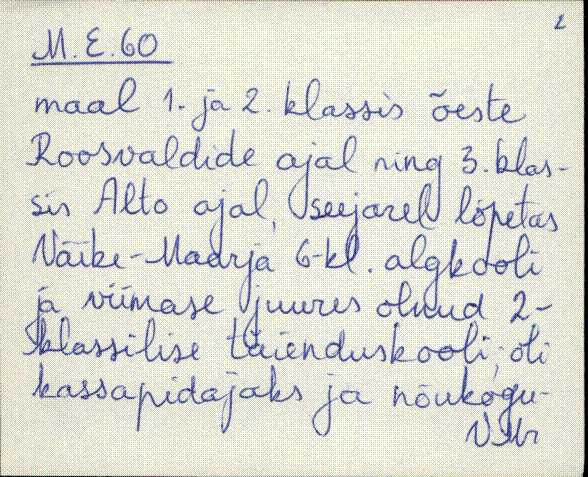 2
M. E. 60
maal 1. ja 2. klassis õeste
Roosvaldide ajal ning 3. klas-
sis Alto ajal, seejarel lõpetas
Väike-Maarja 6-kl. algkooli
ja viimase juures olnud 2-
klassilise täienduskooli; oli
kassapidajaks ja nõukogu-